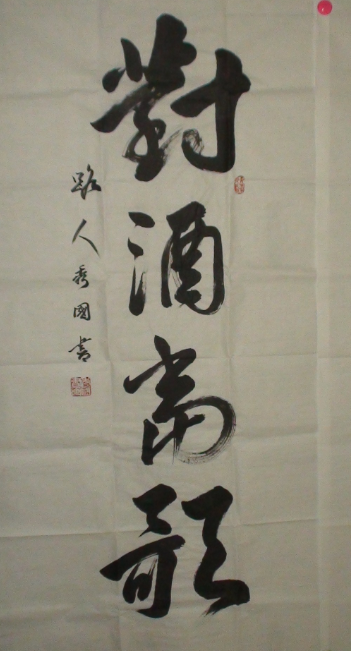 對酒當歌
路人秀國書